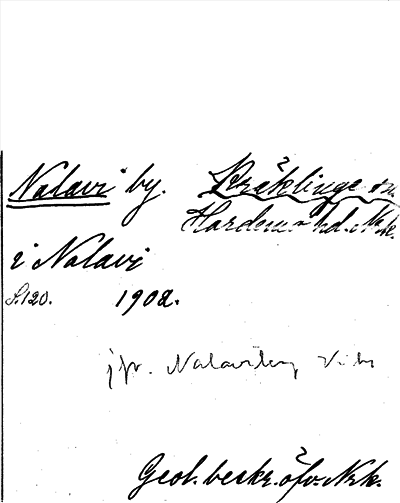 Nalavi by. Kräklinge sn.
Hardemo hd. Nke.
i Nalavi
S. 120. 1902.
jfr. Nalaviberg
Geol. beskr. öfv. Nrk.